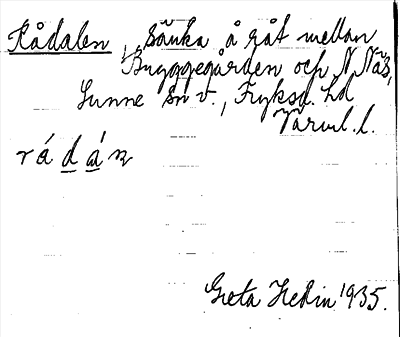 Rådalen, Sänka å råt mellan
Byggegården och N Näs,
Sunne sn v., Fryksd. hd
Värml. l.
rádán
Greta Hedin 1935.